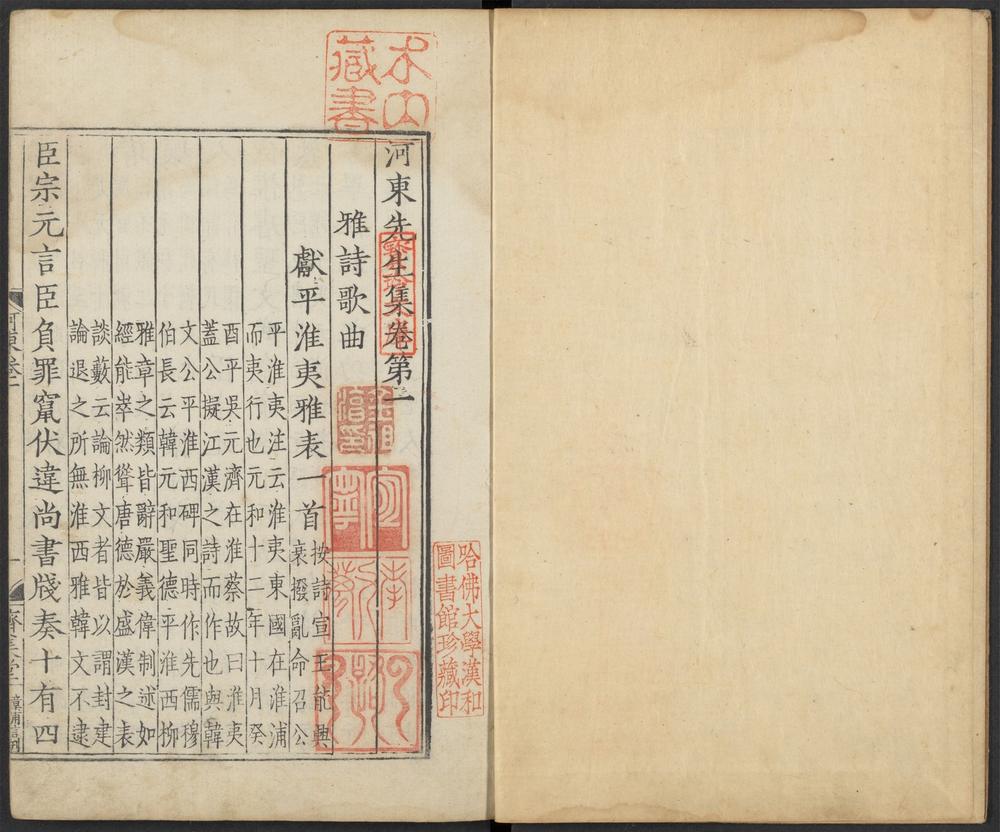 河東先生集卷第一
雅詩歌曲
獻平淮夷雅表一首
按詩宣王能興
衰撥亂命召公
平淮夷注云淮夷東國在淮浦
而夷行也元和十二年十月癸
酉平吳元濟在淮蔡故曰淮夷
蓋公擬江漢之詩而作也與韓
文公平淮西碑同時作先儒穆
伯長云韓元和聖德平淮西柳
雅章之類皆辭嚴義偉制述如
經能崒然聳唐德於盛漢之表
談藪云論柳文者皆以謂封建
論退之所無淮西雅韓文不逮
臣宗元言臣負罪竄伏違尚書牋奏十有四
哈佛大學漢和
圖書館珍藏印
藏書